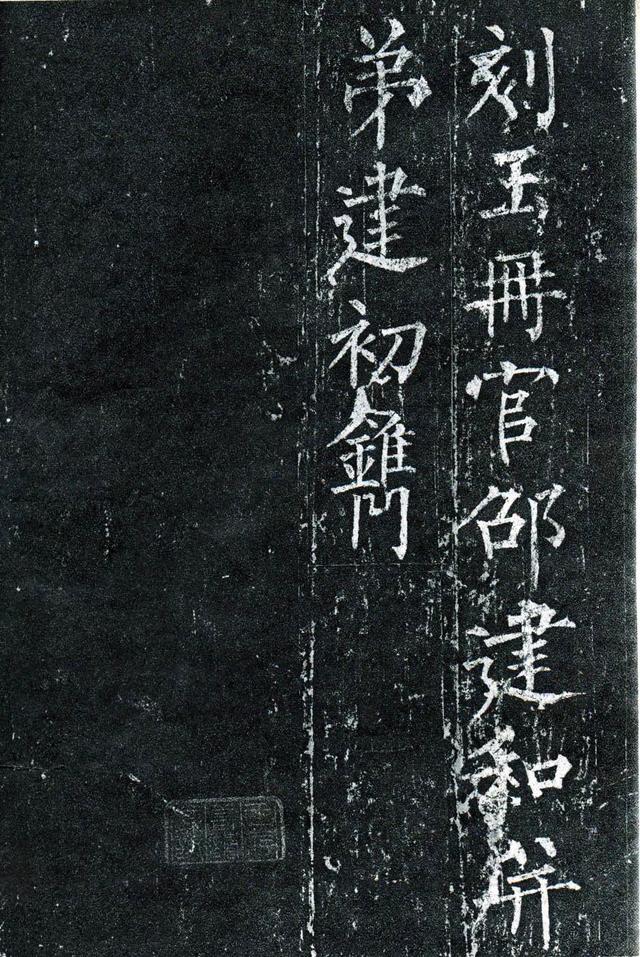 刻玉冊官邵建和并
弟建初鐫